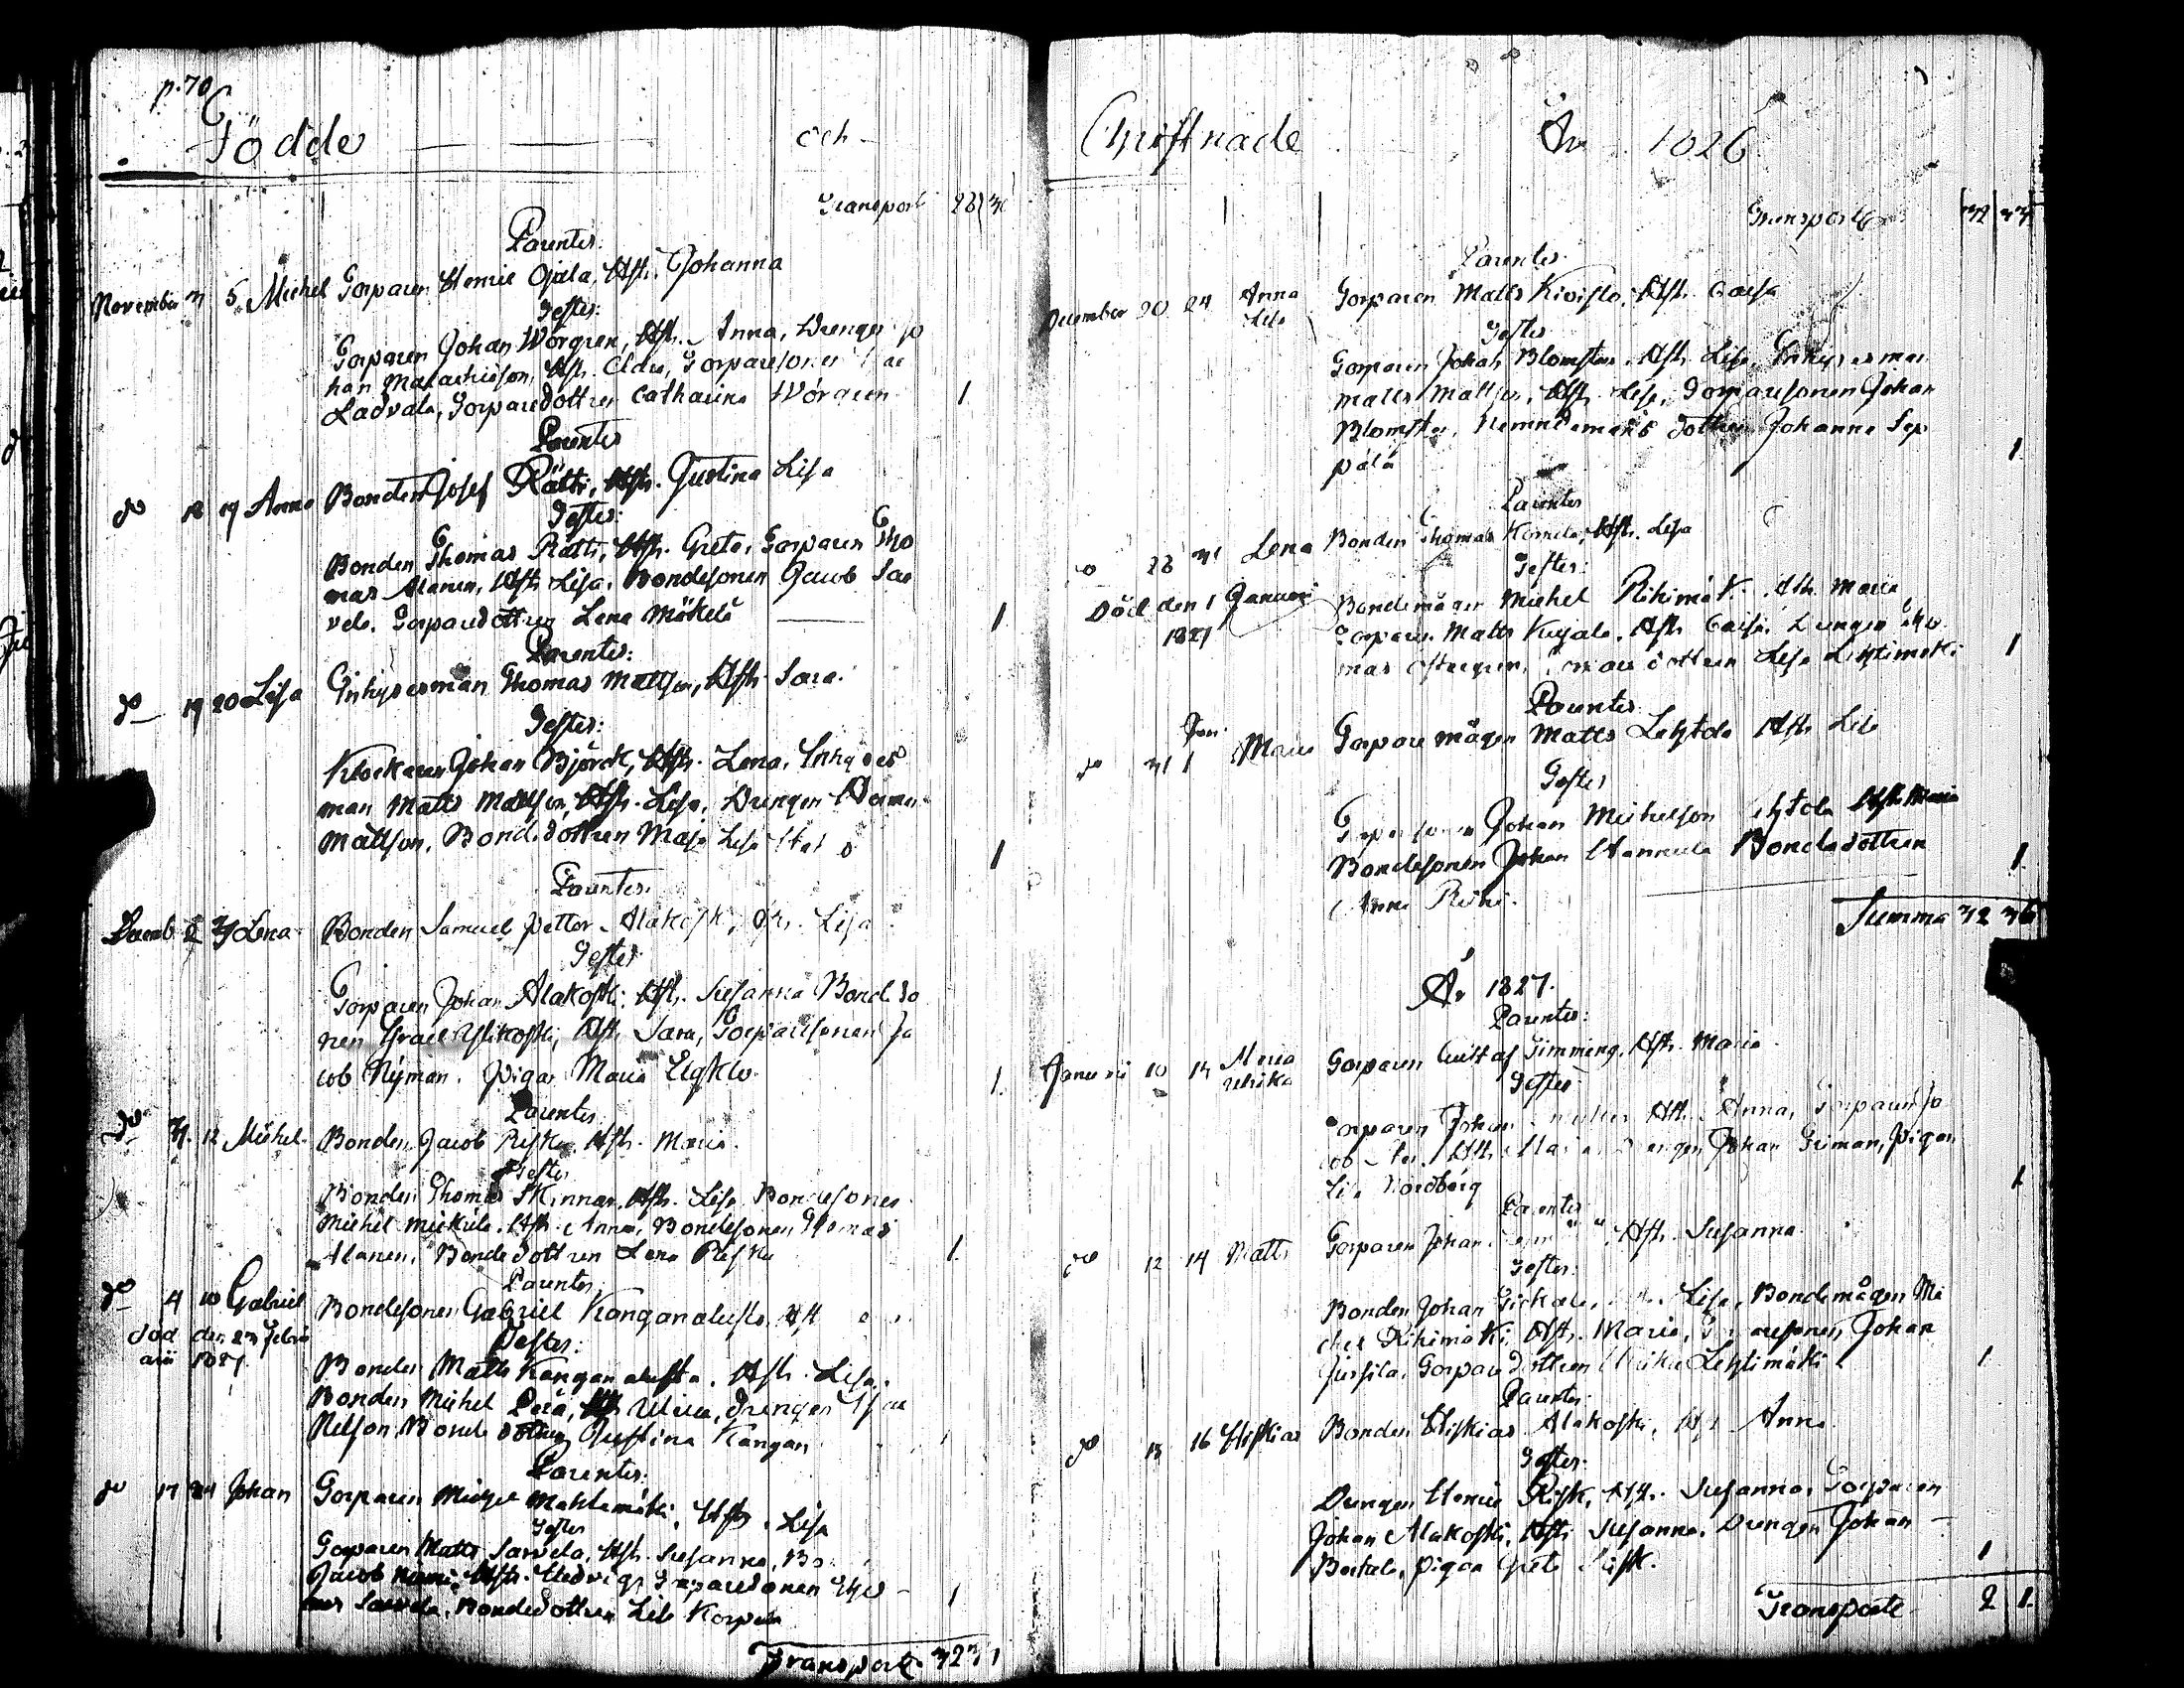 p. 70
Födde och
Transport 28 30
Parentes:
November 3 5. Michel Torparen Henric Ojala, Hst. Johanna
Testes:
Torparen Johan Wörgren, Hst. Anna, Drengen Jo
han Malachieson, Hst. Torparesonen
Ladvala, Torparedottren Catharina Wörgren 1
Parentes
do 18 19 Anna Bonden Josef Rätti, Hst. Justina Lisa
Testes:
Bonden Thomas Rätti, Hst. Greta, Torparen Tho
mas Alanen, Hst. Lisa, Bondesonen Jacob Sar
vela. Torparedottren Lena Mäkelä 1
Parentes:
do 19 20 Lisa Inhysesman Thomas Mattson, Hst. Sara.
Testes:
Klockaren Johan Björck, Hst. Lena, Inhyses
man Matts Mattson, Hst. Lisa, Drengen Herman
Mattson, Bondedottren Maja Lisa 1
Parentes.
Decemb 2 3 Lena Bonden Samuel Petter Alakoski, Hst. Lisa
Testes
Torparen Johan Alakoski, Hst. Susanna Bondeso
nen Israel Ylikoski, Hst. Sara, Torparesonen Ja
cob Nyman. Pigan Maria Elgklo. 1.
Parentes
do 12 Michel. Bonden Jacob Riska, Hst. Maria.
Testes
Bonden Thomas Skinnar, Hst. Lisa, Bondesonen
Michel Mickula, Hst. Anna, Bondesonen Thomas
Alanen, Bondedottren Lena Riska 1.
Parentes.
do 4 10 Gabriel Bondesonen Gabriel Kanganalusta, Hst
död den 23 Febru
arii 1827.
Testes:
Bonden Matts Kanganalusta, Hst. Lisa,
Bonden Michel Perä, Hst. Ulrica, Drengen Isac
Nilson, Bondedottren Justina Kangan 1
Parentes:
do 17 24 Johan Torparen Michel Mahlamäki, Hst. Lisa
Testes
Torparen Matts Sarvela, Hst. Susanna,
Jacob Hst. Hedvig, Torparesonen Tho
mas Sarvela, Bondedottren Lisa Korpela 1
Transport 32 31
Christnade År 1826
Transport 32 33
Parentes.
December 20 24 Anna Lisa Torparen Matts Kivisto, Hst. Caisa
Testes
Torparen Johan Blomster, Hst. Lisa, Inhysesman
Matts Mattson, Hst. Lisa, Torparesonen Johan
Blomster, Nemndemans dottren Johanna Sep
pälä 1
Parentes
do 28 31 Lena Bonden Thomas Hst. Lisa
Testes:
Död den 1 Januari
1827
Bondemågen Michel Rihimäki, Hst. Maria,
Torparen Matts Kujala, Hst. Caisa, Drengen Tho
mas Torparedottren Lisa Lehtimäki 1
Parentes
do 31 Jan. 1 Maria Torparemågen Matts Lehtola Hst. Lisa
Testes
Torparesonen Johan Michelson Lehtola Hst. Maria
Bondesonen Johan Hannula Bondedottren
Anna Rihi. 1.
Summa 32 36
År 1827.
Parentes:
Januarii 10 14 Maria Ulrika Torparen Gustaf Timmeng, Hst. Maria.
Testes
Torparen Johan Hst. Anna, Torparen Ja
cob Hst. Maria Drengen Johan Griman, Pigan
Lisa Nordberg 1
Parentes
do 12 14 Matts Torparen Johan Hst. Susanna.
Testes:
Bonden Johan Lisa, Bondemågen Mi
chel Rihimäki, Hst. Maria, Torparesonen Johan
Jussila, Torparedottren Ulrika Lehtimäki 1.
Parentes
do 15 16 Hiskias Bonden Hiskias Alakoski, Hst Anna.
Testes.
Drengen Henric Risk, Hst. Susanna, Torparen
Johan Alakoski, Hst. Susanna, Drengen Johan
Pigan Greta Risk. 1
Transporte 2 1.